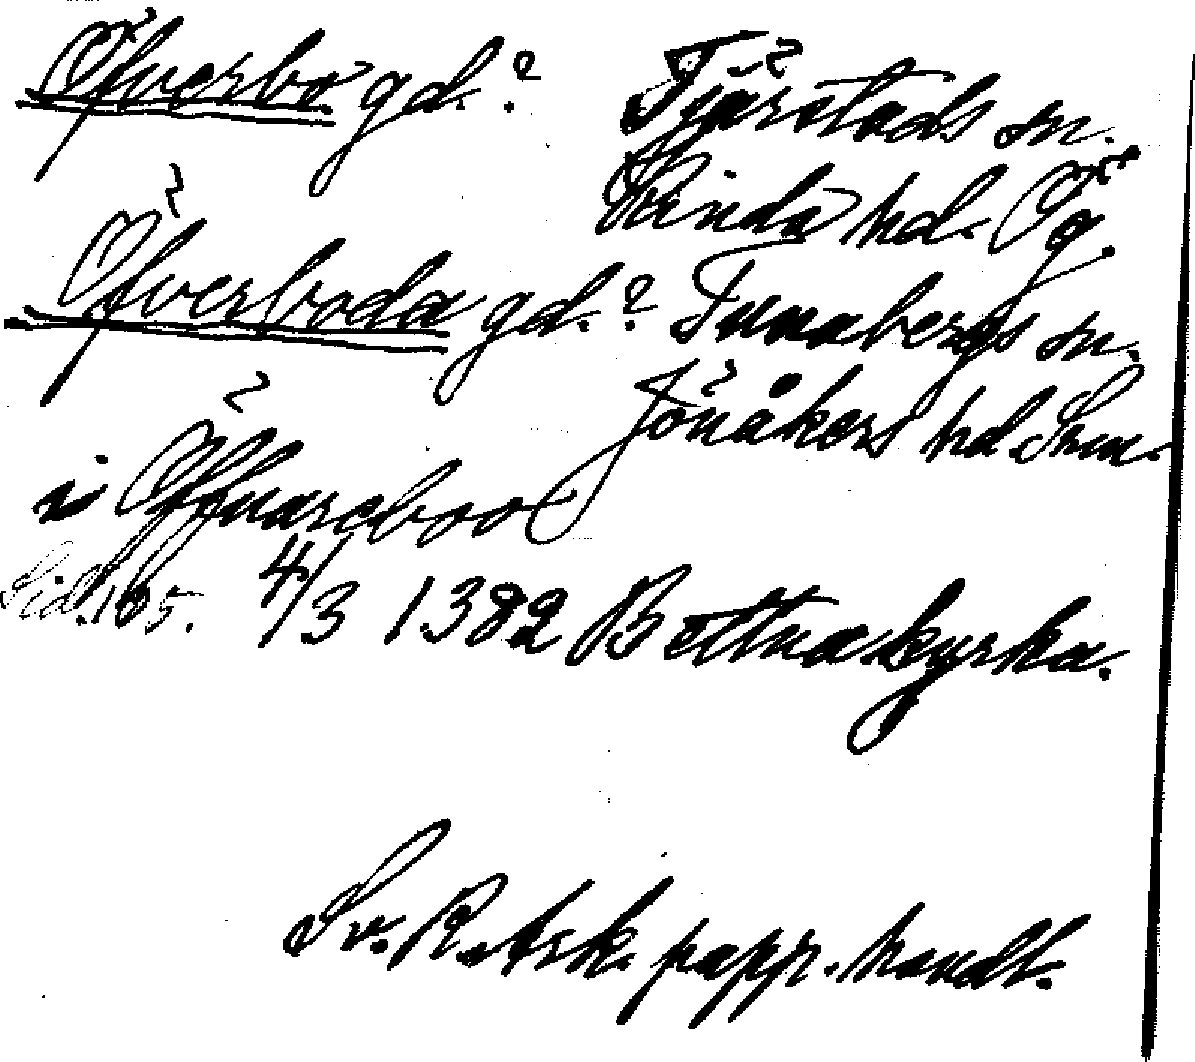 Öfverbo gd.? Tjärstads sn.
Kinda hd. Ög.
Öfverboda gd.? Tunabergs sn.
Jönåkers hd. Srm.
i Öffuareboo
Sid. 165. 4/3 1382 Bettna kyrka.
Sv. R. Ark. papp. handl.